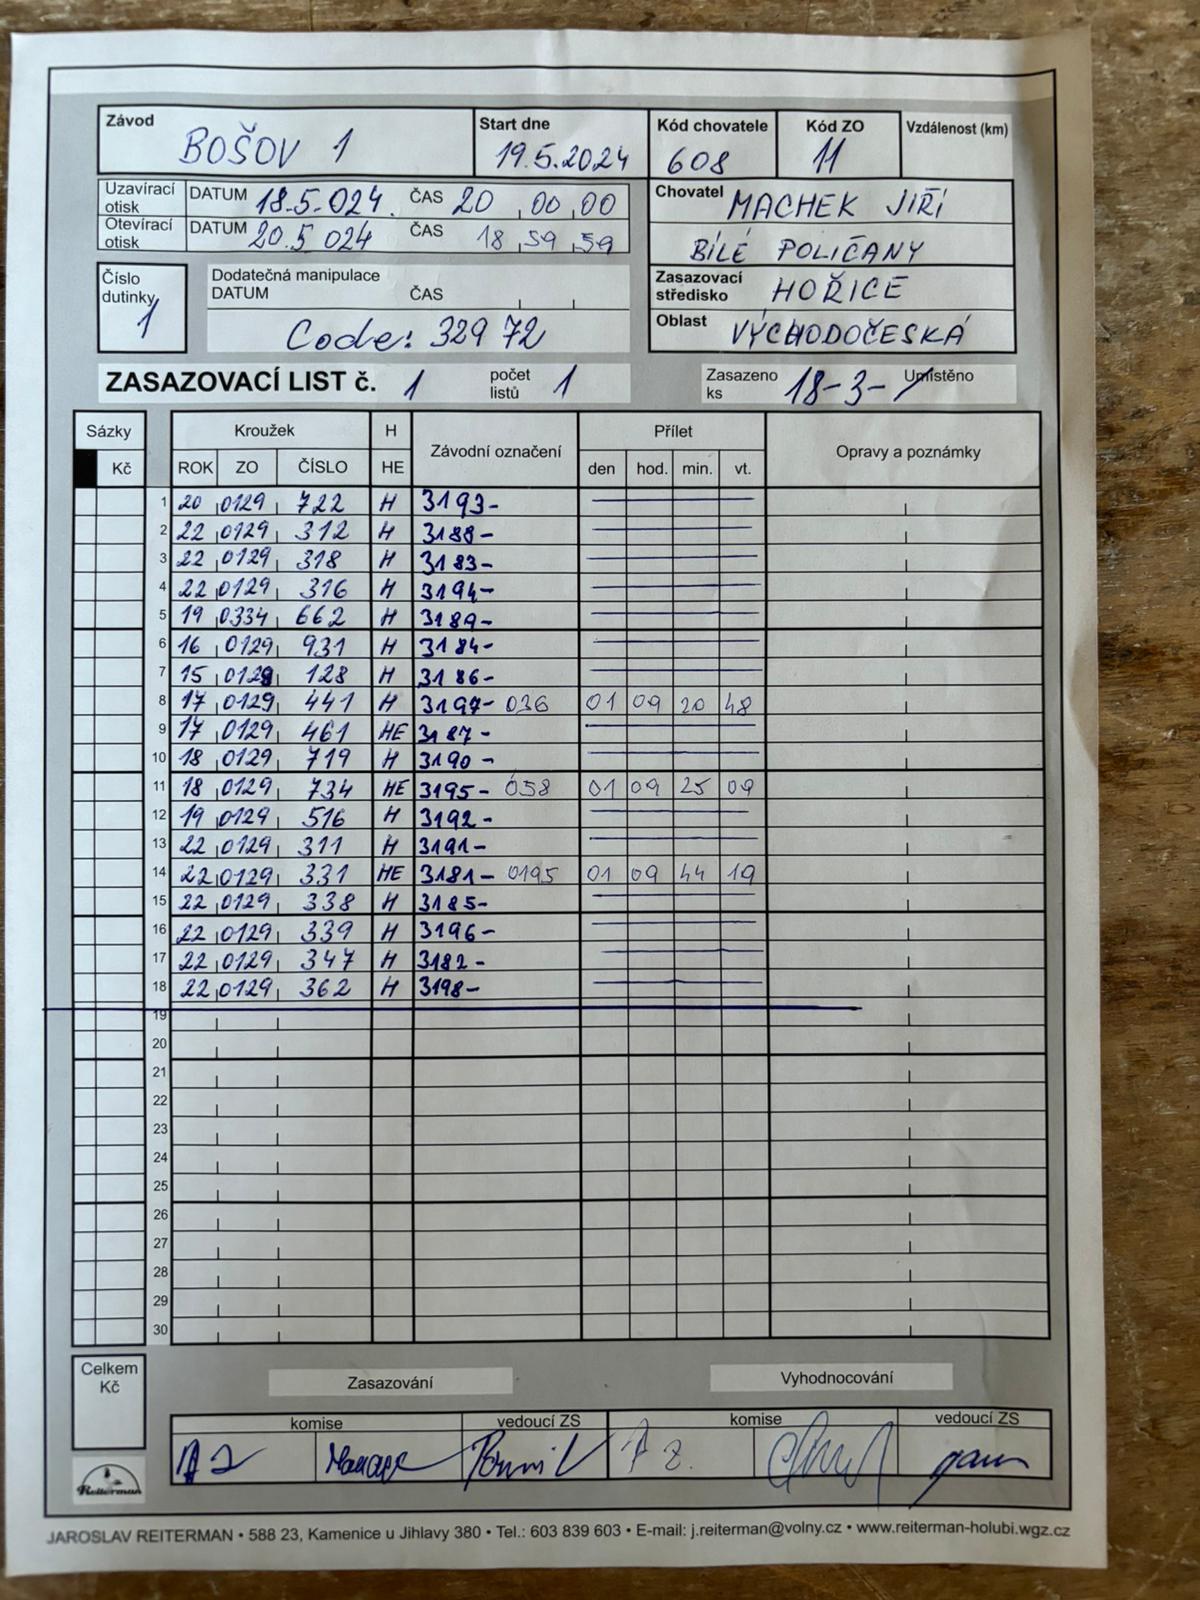 Závod BOŠOV 1 Start dne 19.5.2024 Kód chovatele 608 Kód ZO 11 Vzdálenost (km)
Uzavírací otisk DATUM 18.5.024. ČAS 20 00 00
Otevírací otisk DATUM 20.5 024 ČAS 18 59 59
Chovatel MACHEK JIŘÍ
BÍLÉ POLIČANY
Číslo dutinky 1
Dodatečná manipulace
DATUM ČAS
Code: 32972
Zasazovací středisko HOŘICE
Oblast VÝCHODOČESKÁ
ZASAZOVACÍ LIST č. 1 počet listů 1 Zasazeno ks 18-3- Umístěno
Sázky Kroužek H Závodní označení Přílet Opravy a poznámky
Kč ROK ZO ČÍSLO HE den hod. min. vt.
1 20 0129 722 H 3193-
2 22 0129 312 H 3188-
3 22 0129 318 H 3183-
4 22 0129 316 H 3194-
5 19 0334 662 H 3189-
6 16 0129 931 H 3184-
7 15 0129 128 H 3186-
8 17 0129 441 H 3197- 036 01 09 20 48
9 17 0129 461 HE 3187-
10 18 0129 719 H 3190-
11 18 0129 734 HE 3195- 058 01 09 25 09
12 19 0129 516 H 3192-
13 22 0129 311 H 3191-
14 22 0129 331 HE 3181- 0195 01 09 44 19
15 22 0129 338 H 3185-
16 22 0129 339 H 3196-
17 22 0129 347 H 3182-
18 22 0129 362 H 3198-
19
20
21
22
23
24
25
26
27
28
29
30
Celkem Kč
Zasazování Vyhodnocování
komise vedoucí ZS komise vedoucí ZS
Reiterman
JAROSLAV REITERMAN • 588 23, Kamenice u Jihlavy 380 • Tel.: 603 839 603 • E-mail: j.reiterman@volny.cz • www.reiterman-holubi.wgz.cz